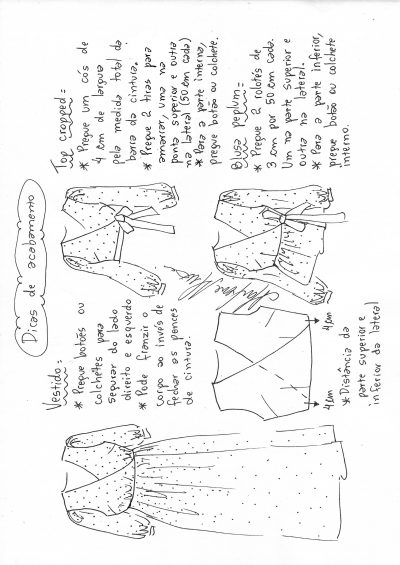 Dicas de acabamento
Vestido:
* Pregue botões ou
colchetes para
segurar do lado
direito e esquerdo
* Pode franzir o
corpo ao invés de
fechar as pences
de cintura.
Top cropped:
* Pregue um cós de
4 cm de largura
pela medida total da
barra da cintura.
* Pregue 2 tiras para
amarrar, uma na
ponta superior e outra
na lateral (50 cm cada)
* Para a parte interna,
pregue botão ou colchete.
Blusa peplum:
* Pregue 2 rolotés de
3 cm por 50 cm cada.
Um na parte superior e
outra na lateral.
* Para a parte inferior,
pregue botão ou colchete
interno.
4 cm
4 cm
* Distância da
parte superior e
inferior da lateral